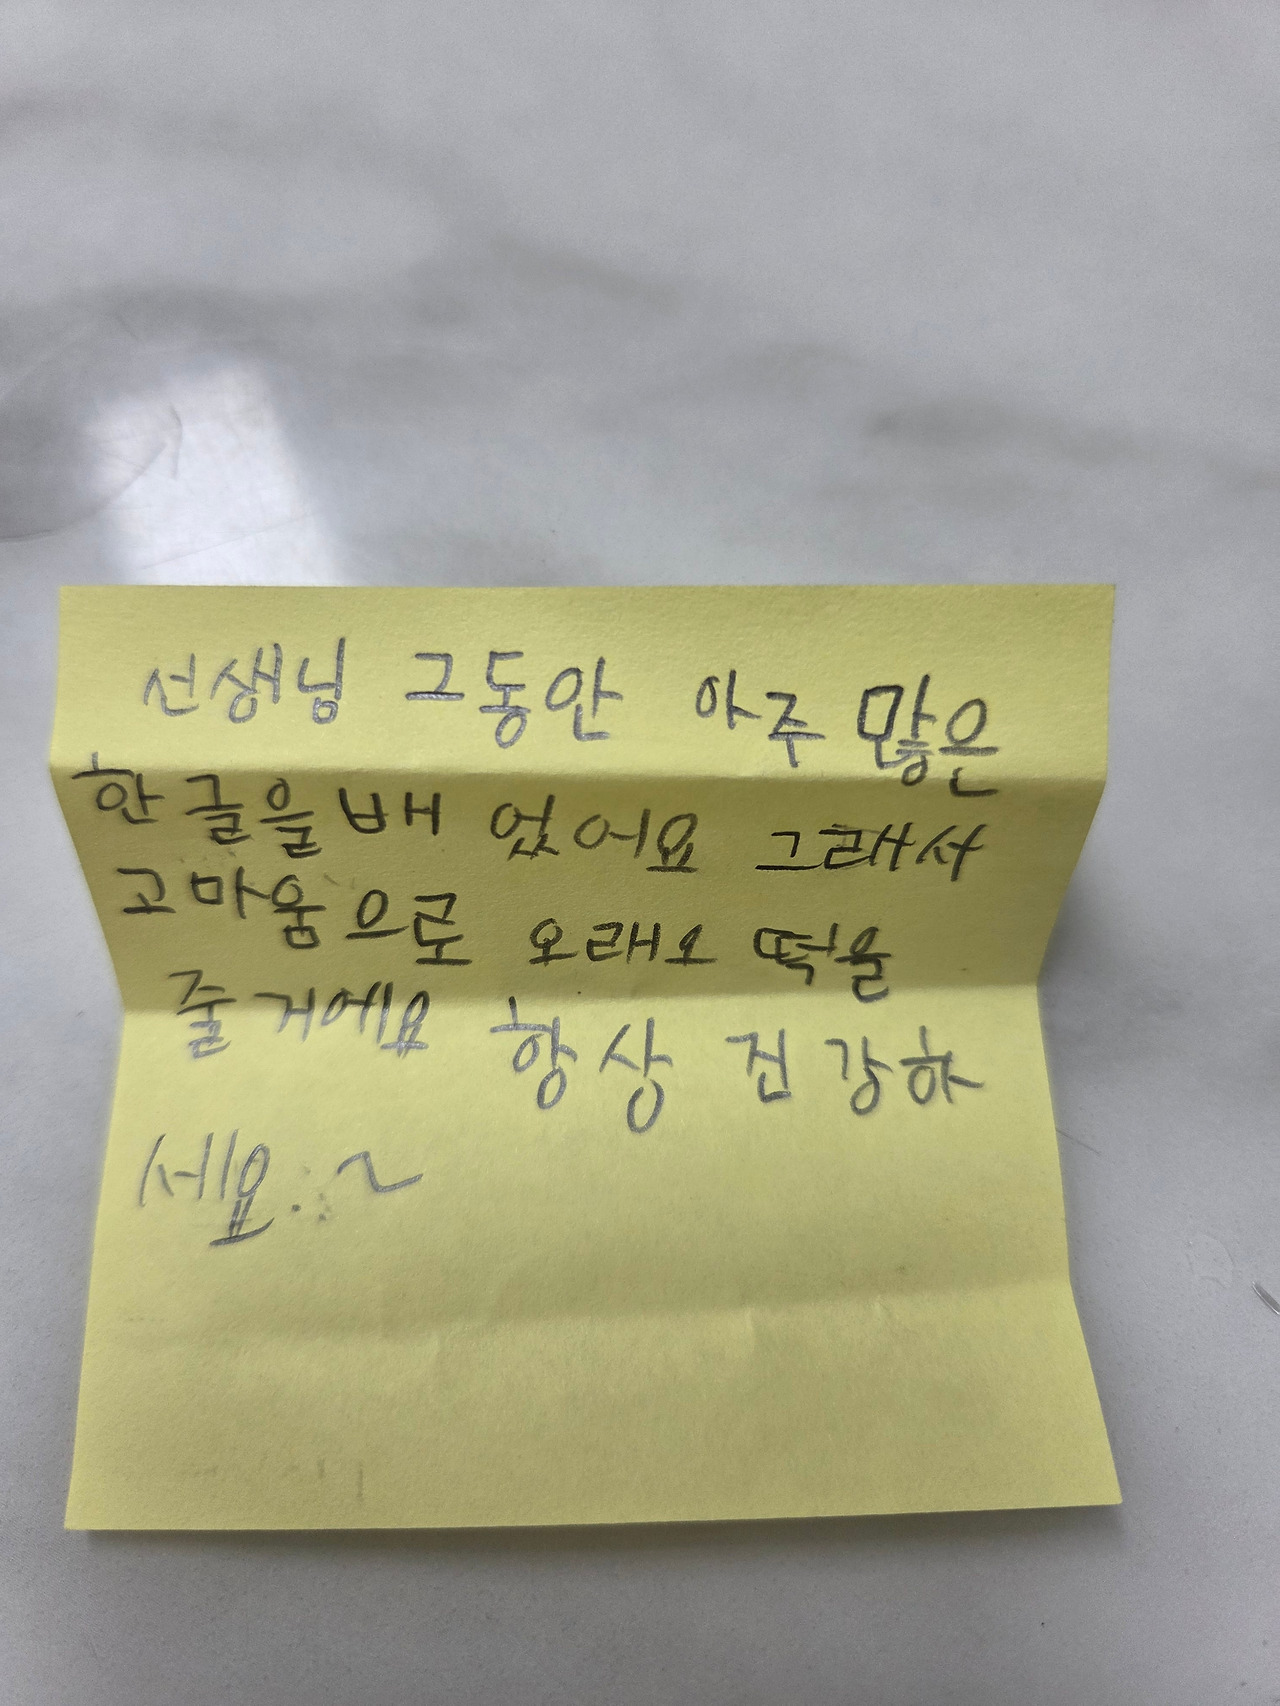 선생님 그동안 아주 많은
한글을 배 었어요 그래서
고마움으로 오래오 떡을
줄거에요 항상 건강하
세요:~